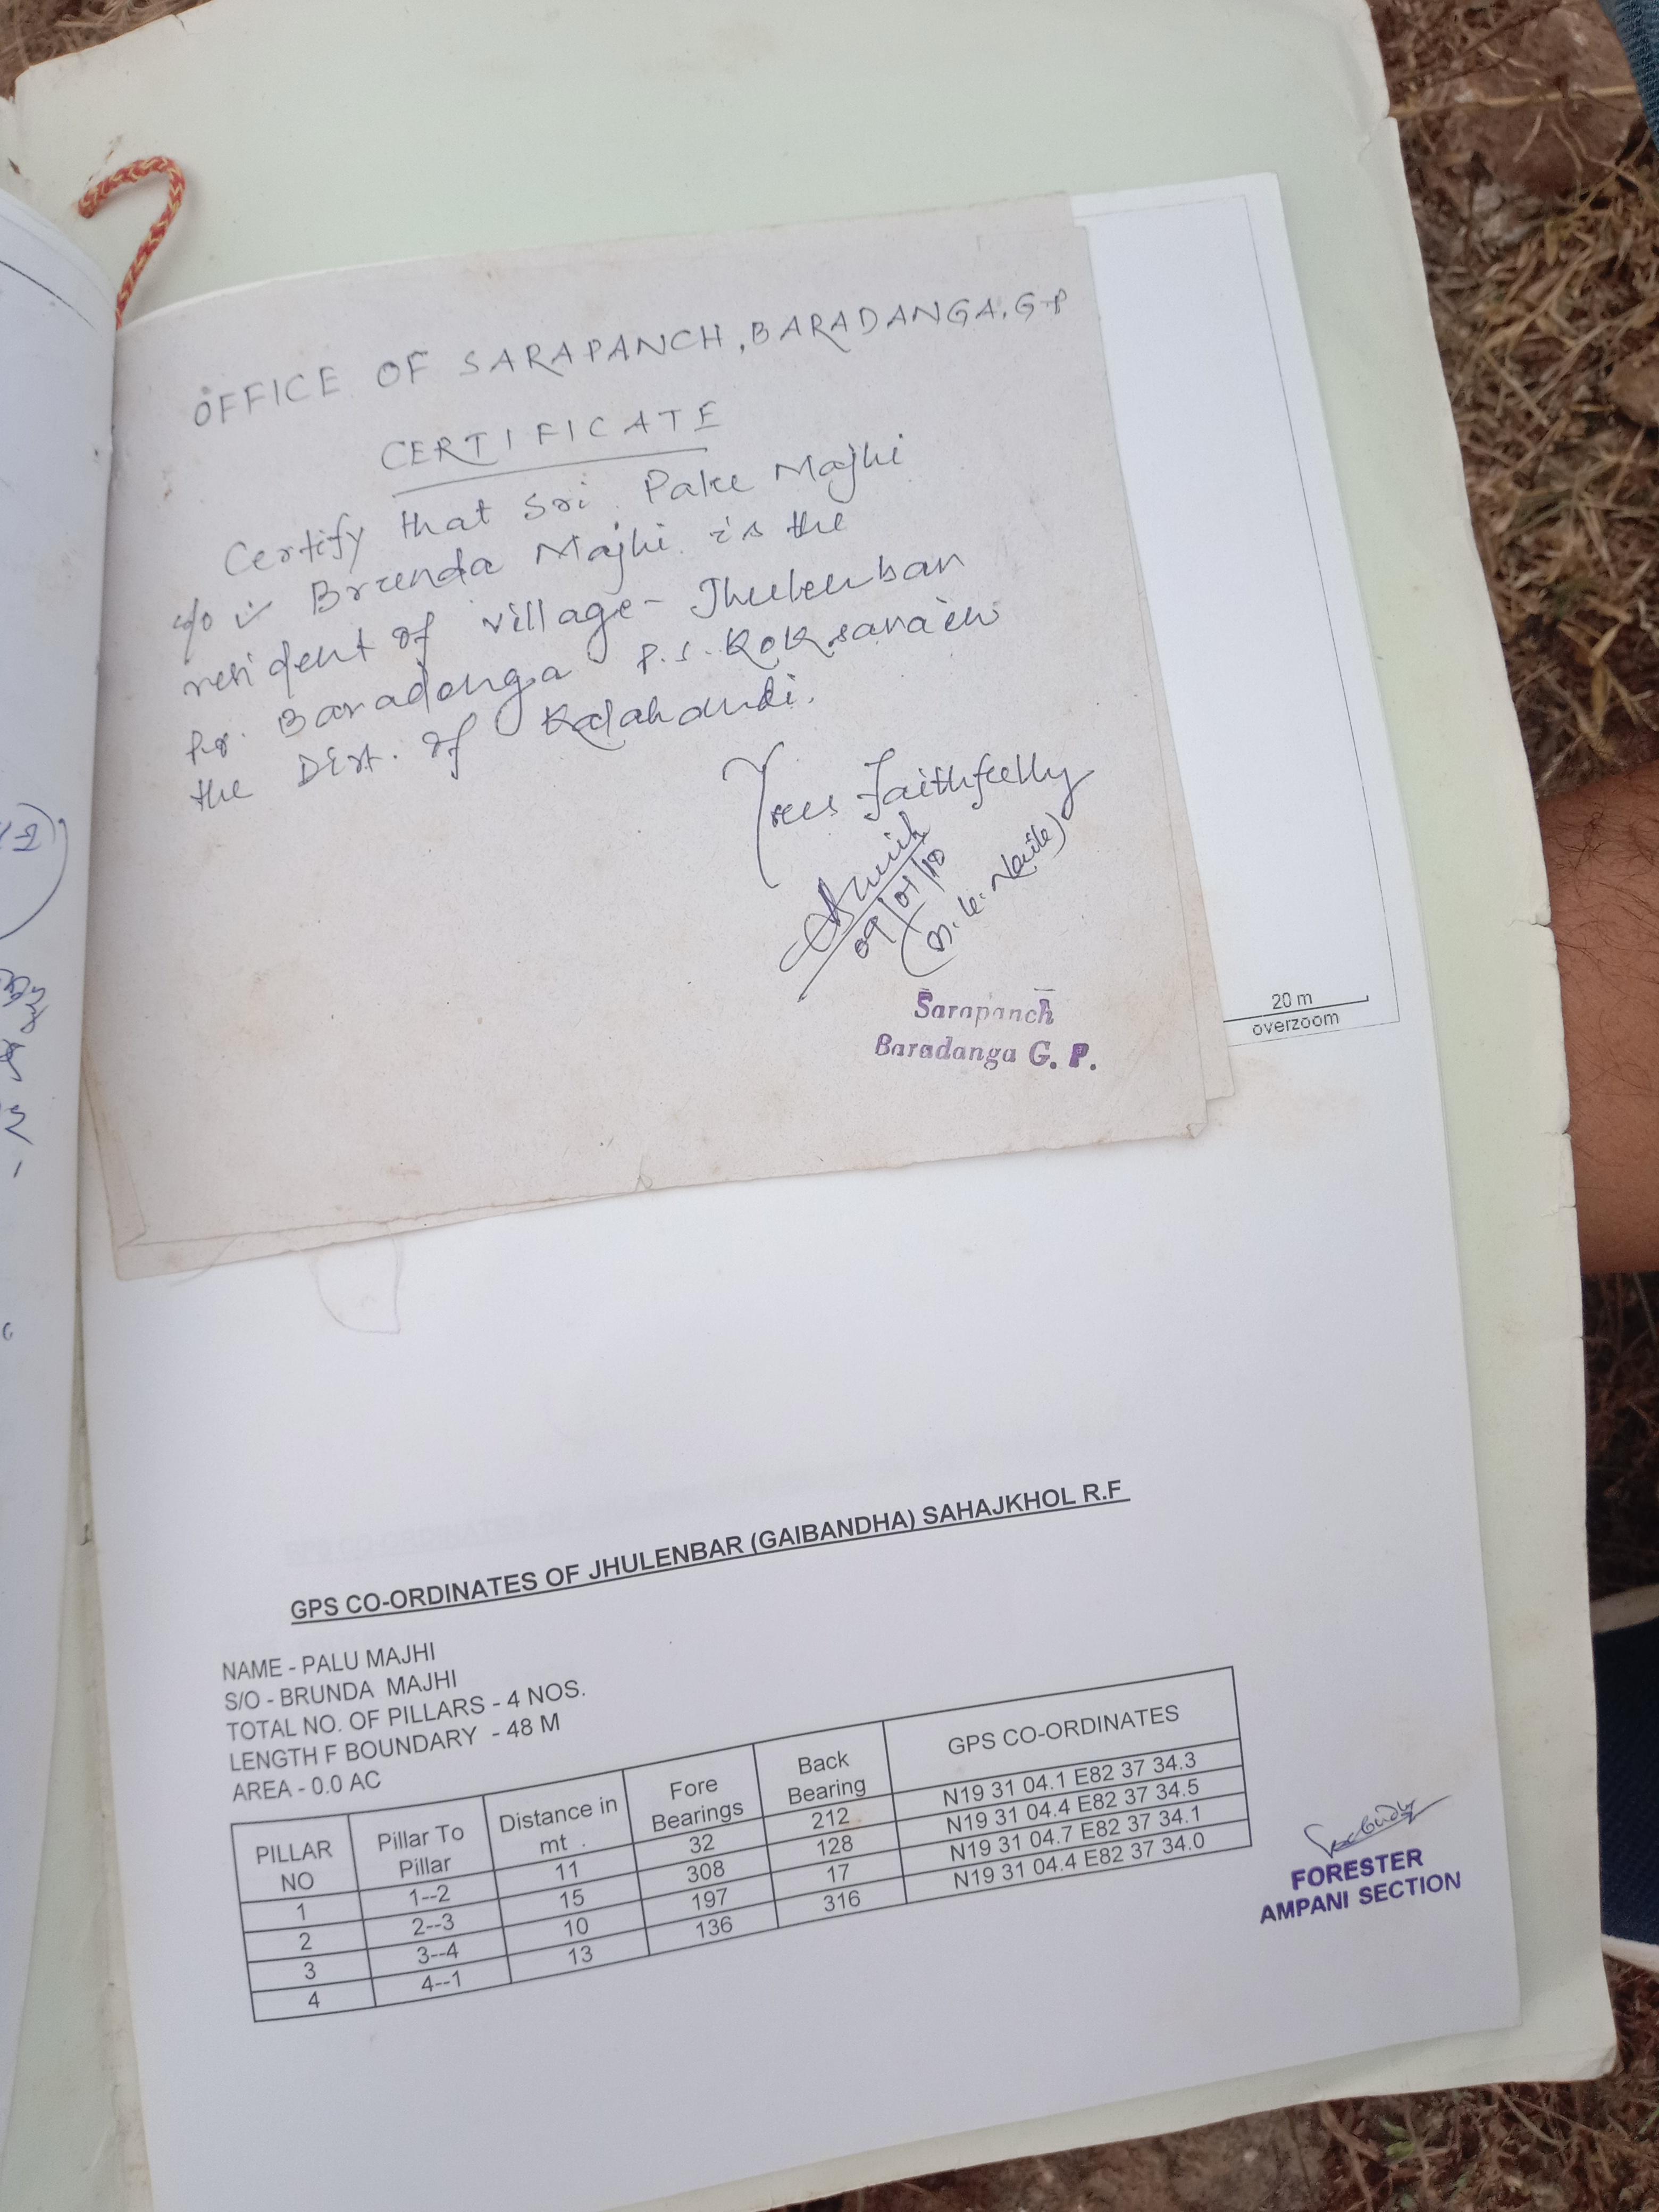 OFFICE OF SARAPANCH, BARADANGA, G.P
CERTIFICATE
Certify that Sri Pale Majhi
s/o Brunda Majhi is the
resident of village - Jhulenban
Po. Baradanga P.S. Koksara
the Dist. of Kalahandi.
Yours Faithfully
09/01/10
Sarapanch
Baradanga G. P.
20 m
overzoom
GPS CO-ORDINATES OF JHULENBAR (GAIBANDHA) SAHAJKHOL R.F
NAME - PALU MAJHI
S/O - BRUNDA MAJHI
TOTAL NO. OF PILLARS - 4 NOS.
LENGTH F BOUNDARY - 48 M
AREA - 0.0 AC
PILLAR NO Pillar To Pillar Distance in mt . Fore Bearings Back Bearing GPS CO-ORDINATES
1 1--2 11 32 212 N19 31 04.1 E82 37 34.3
2 2--3 15 308 128 N19 31 04.4 E82 37 34.5
3 3--4 10 197 17 N19 31 04.7 E82 37 34.1
4 4--1 13 136 316 N19 31 04.4 E82 37 34.0
FORESTER
AMPANI SECTION